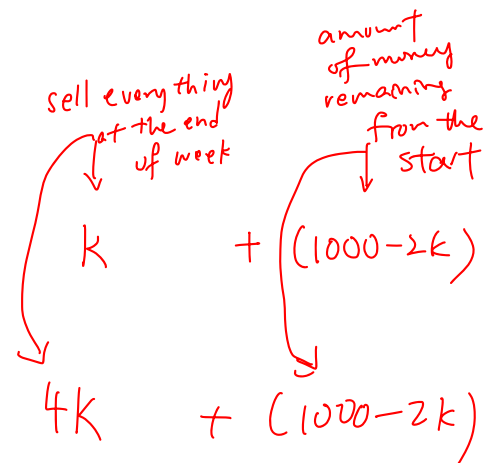 sell everything
at the end
of week
amount
of money
remaining
from the
start
k + (1000-2k)
4k + (1000-2k)